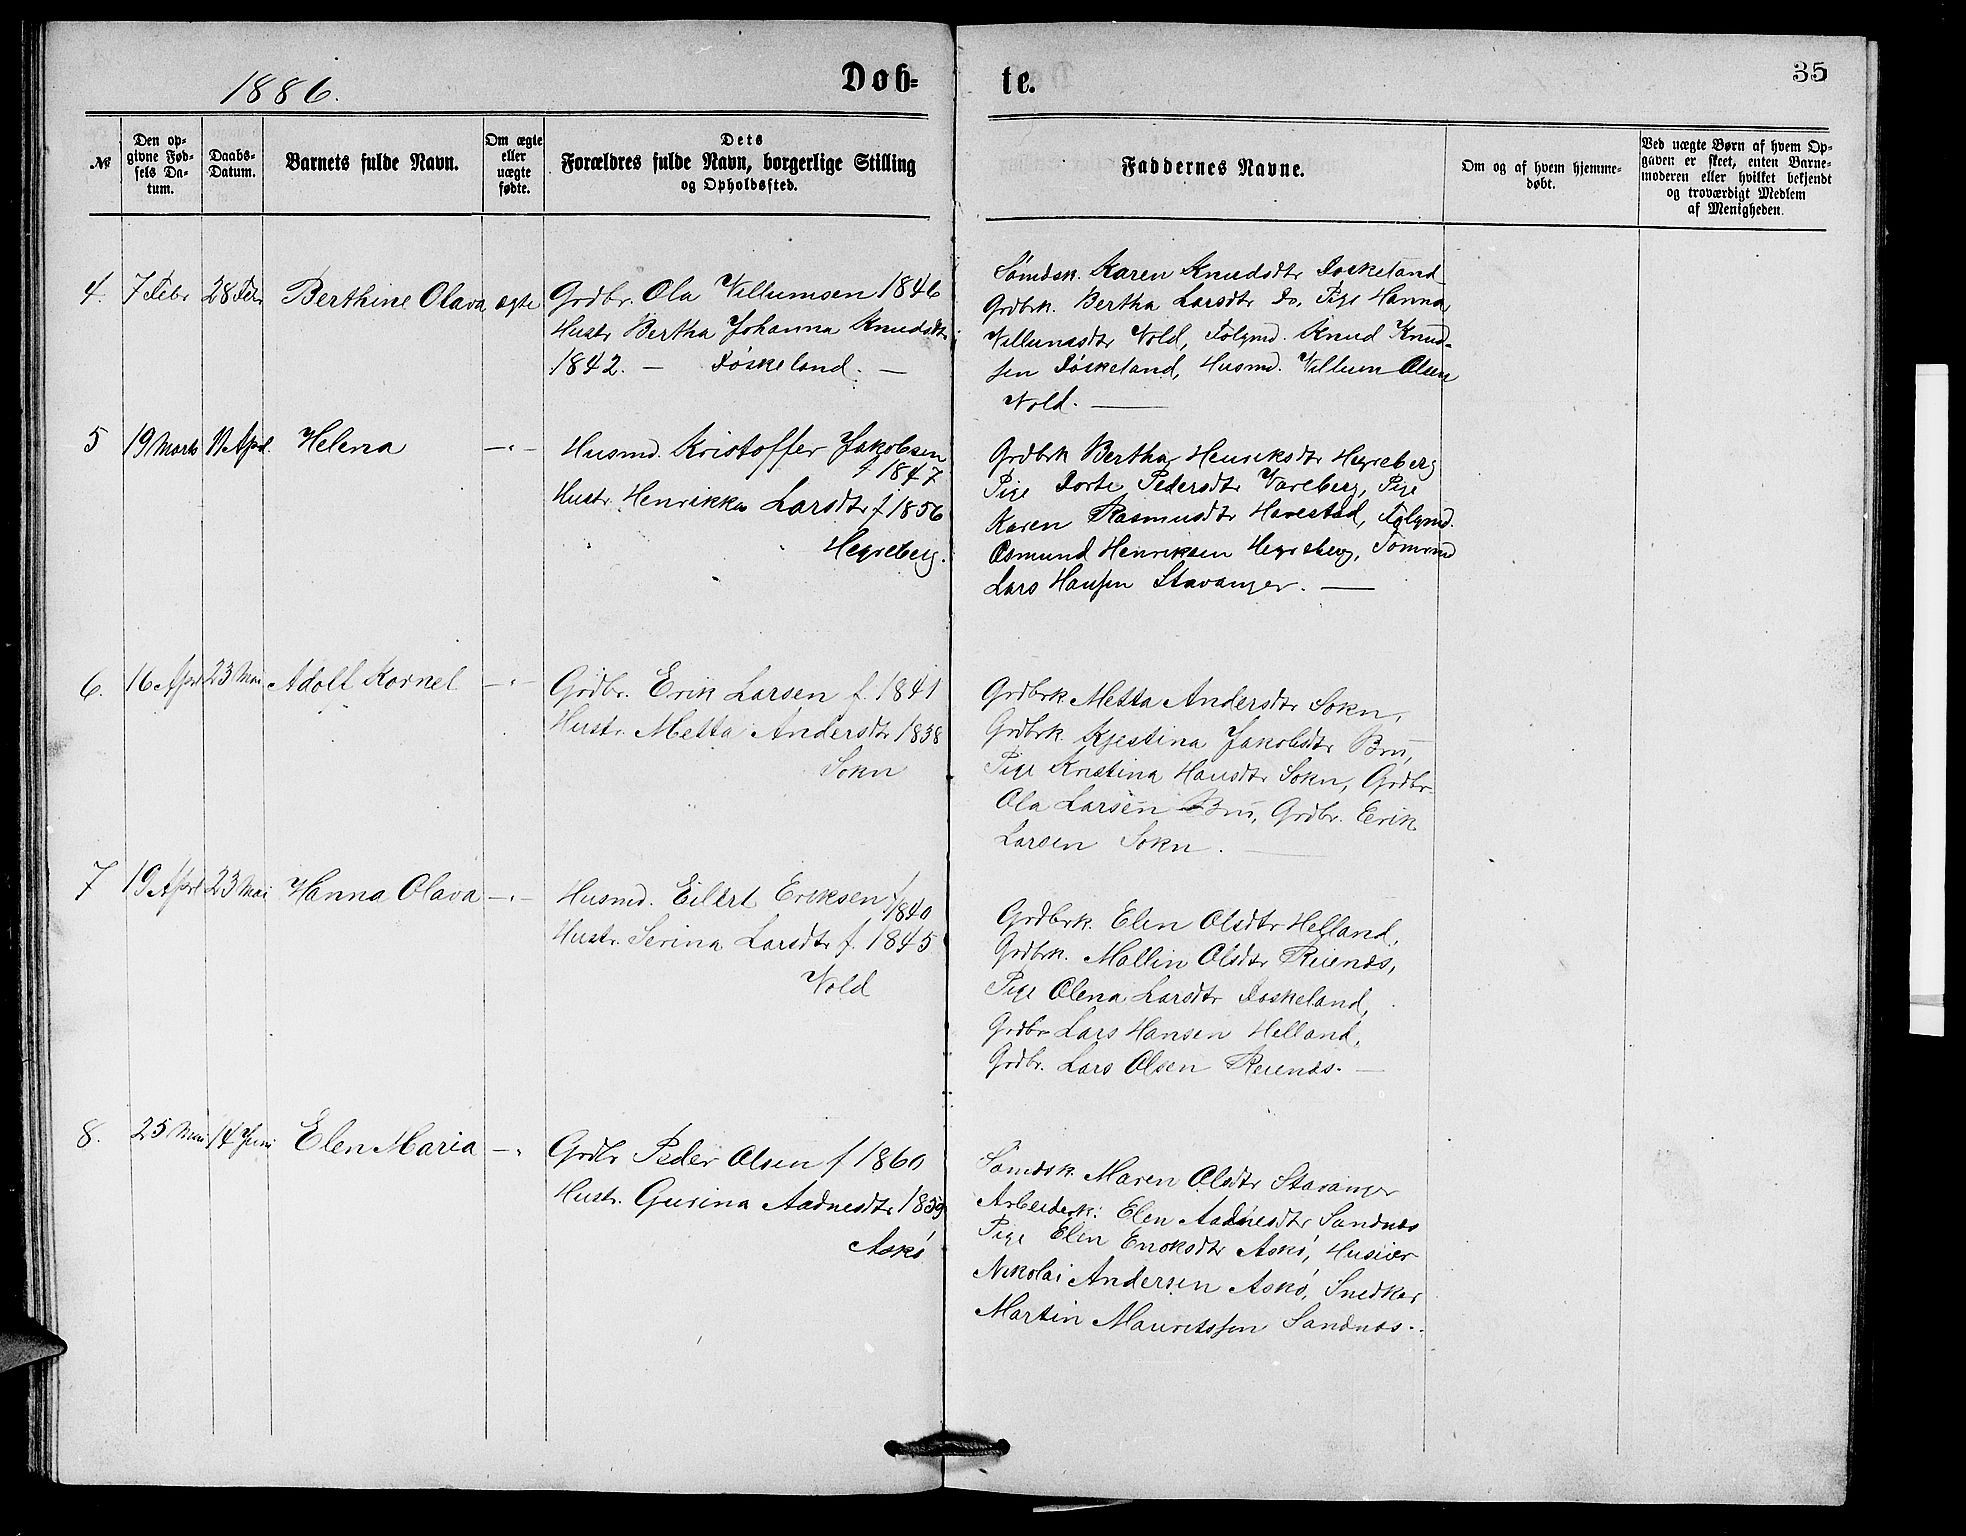 1886.
Døb-
te.
35
№
Den op-
givne Fød-
sels Da-
tum.
Daabs-
Datum.
Barnets fulde Navn.
Om ægte
eller
uægte
fødte.
Dets
Forældres fulde Navn, borgerlige Stilling
og Opholdssted.
Faddernes Navne.
Om og af hvem hjemme-
døbt.
Ved uægte Børn af hvem Op-
gaven er skeet, enten Barne-
moderen eller hvilket bekjendt
og troværdigt Medlem
af Menigheden.
4. 7 Febr 28 Febr Berthine Olava ægte
Grdbr. Ola Villumsen 1846
Hustr Bertha Johanna Knudsdtr
1842. — Døskeland. —
Sømdsk. Karen Knudsdtr Doskeland
Grdbrk. Bertha Larsdtr Do, Pige Hanna
Villumsdtr Vold, Følgmd. Knud Knud-
sen Døskeland, Husmd. Villum Olsen
Vold. —
5 19 Marts 11 April. Helena —"—
Husmd. Kristoffer Jakobsen
f 1847
Hustr. Henrikka Larsdtr f 1856
Hegreberg.
Grdbrk Bertha Henriksdtr Hegreberg
Pige Dorte Pedersdtr Vareberg, Pige
Karen Rasmusdtr Harestad, Følgmd.
Osmund Henriksen Hegreberg, Tømmd
Lars Hansen Stavanger. —
6. 16 April 23 Mai Adolf Kornel —"—
Grdbr. Erik Larsen f. 1841
Hustr. Metta Andersdtr 1838
Sokn
Grdbrk. Metta Andersdtr Sokn,
Grdbrk. Kjestina Jakobsdtr Bru,
Pige Kristina Hansdtr Sokn, Grdbr.
Ola Larsen Bru, Grdbr. Erik
Larsen Sokn. —
7 19 April 23 Mai Hanna Olava —"—
Husmd. Eilert Eriksen f 1840
Hustr. Serina Larsdtr f. 1845
Vold
Grdbrk. Elen Olsdtr Helland,
Grdbrk. Mallin Olsdtr Reienæs,
Pige Olena Larsdtr Doskeland,
Grdbr Lars Hansen Helland,
Grdbr. Lars Olsen Reienæs. —
8. 25 Mai 14 Juni Elen Maria —"
Grdbr Peder Olsen f 1860
Hustr. Gurina Aadnesdtr 1859
Askø
Sømdsk. Maren Olsdtr Stavanger
Arbeidersk: Elen Aadnesdtr Sandnæs
Pige Elen Enoksdtr Askø, Huseier
Nikolai Andersen Askø, Snedker
Martin Mauritssen Sandnæs.